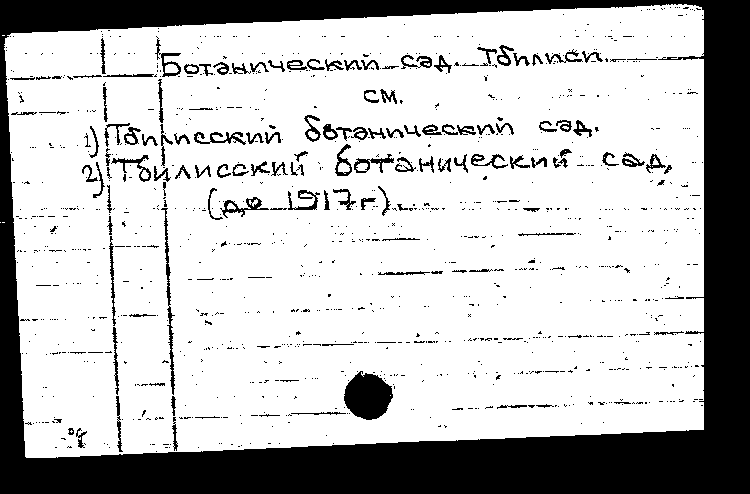 Ботанический сад. Тбилиси.
см.
1) Тбилисский ботанический сад.
2) Тбилисский ботанический сад,
(до 1917г).